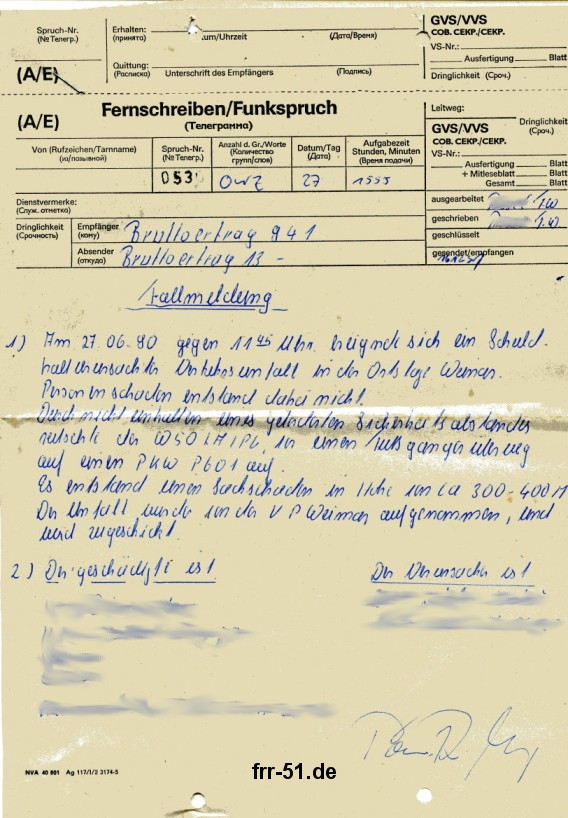 Spruch-Nr.
(№ Телегр.)
Erhalten:
(принята)
um/Uhrzeit
(Дата/Время)
GVS/VVS
СОВ. СЕКР./СЕКР.
VS-Nr.:
Ausfertigung Blatt
(A/E)
Quittung:
(Расписка)
Unterschrift des Empfängers
(Подпись)
Dringlichkeit (Сроч.)
(A/E)
Fernschreiben/Funkspruch
(Телеграмма)
Leitweg:
GVS/VVS
СОВ. СЕКР./СЕКР.
Dringlichkeit
(Сроч.)
VS-Nr.:
Ausfertigung Blatt
+ Mitleseblatt Blatt
Gesamt Blatt
Von (Rufzeichen/Tarnname)
(из/позывной)
Spruch-Nr.
(№ Телегр.)
Anzahl d. Gr./Worte
(Количество
групп/слов)
Datum/Tag
(Дата)
Aufgabezeit
Stunden, Minuten
(Время подачи)
053 OWZ 27 1555
Dienstvermerke:
(Служ. отметка)
ausgearbeitet
geschrieben
geschlüsselt
gesendet/empfangen
Dringlichkeit
(Срочность)
Empfänger
(кому)
Bruttoertrag 941
Absender
(откуда)
Bruttoertrag 13 -
Fallmeldung
1) Am 27.06.90 gegen 11 45 Uhr. ereignete sich ein Schuld-
haft verursachter Verkehrsunfall in der Ortslage Weimar.
Personenschaden entstand dabei nicht.
Durch nicht einhalten eines gelockerten Sicherheitsabstandes
rutschte der W50 LA/PL, in einen Fußgängerüberweg
auf einen PKW P601 auf.
Es entstand einen Sachschaden in Höhe von ca 300-400 M
Der Unfall wurde von der VP Weimar aufgenommen, und
wird zugeschickt.
2) Der geschädigte ist
Der Verursacher ist
NVA 40 801 Ag 117/1/2 3174-5
frr-51.de